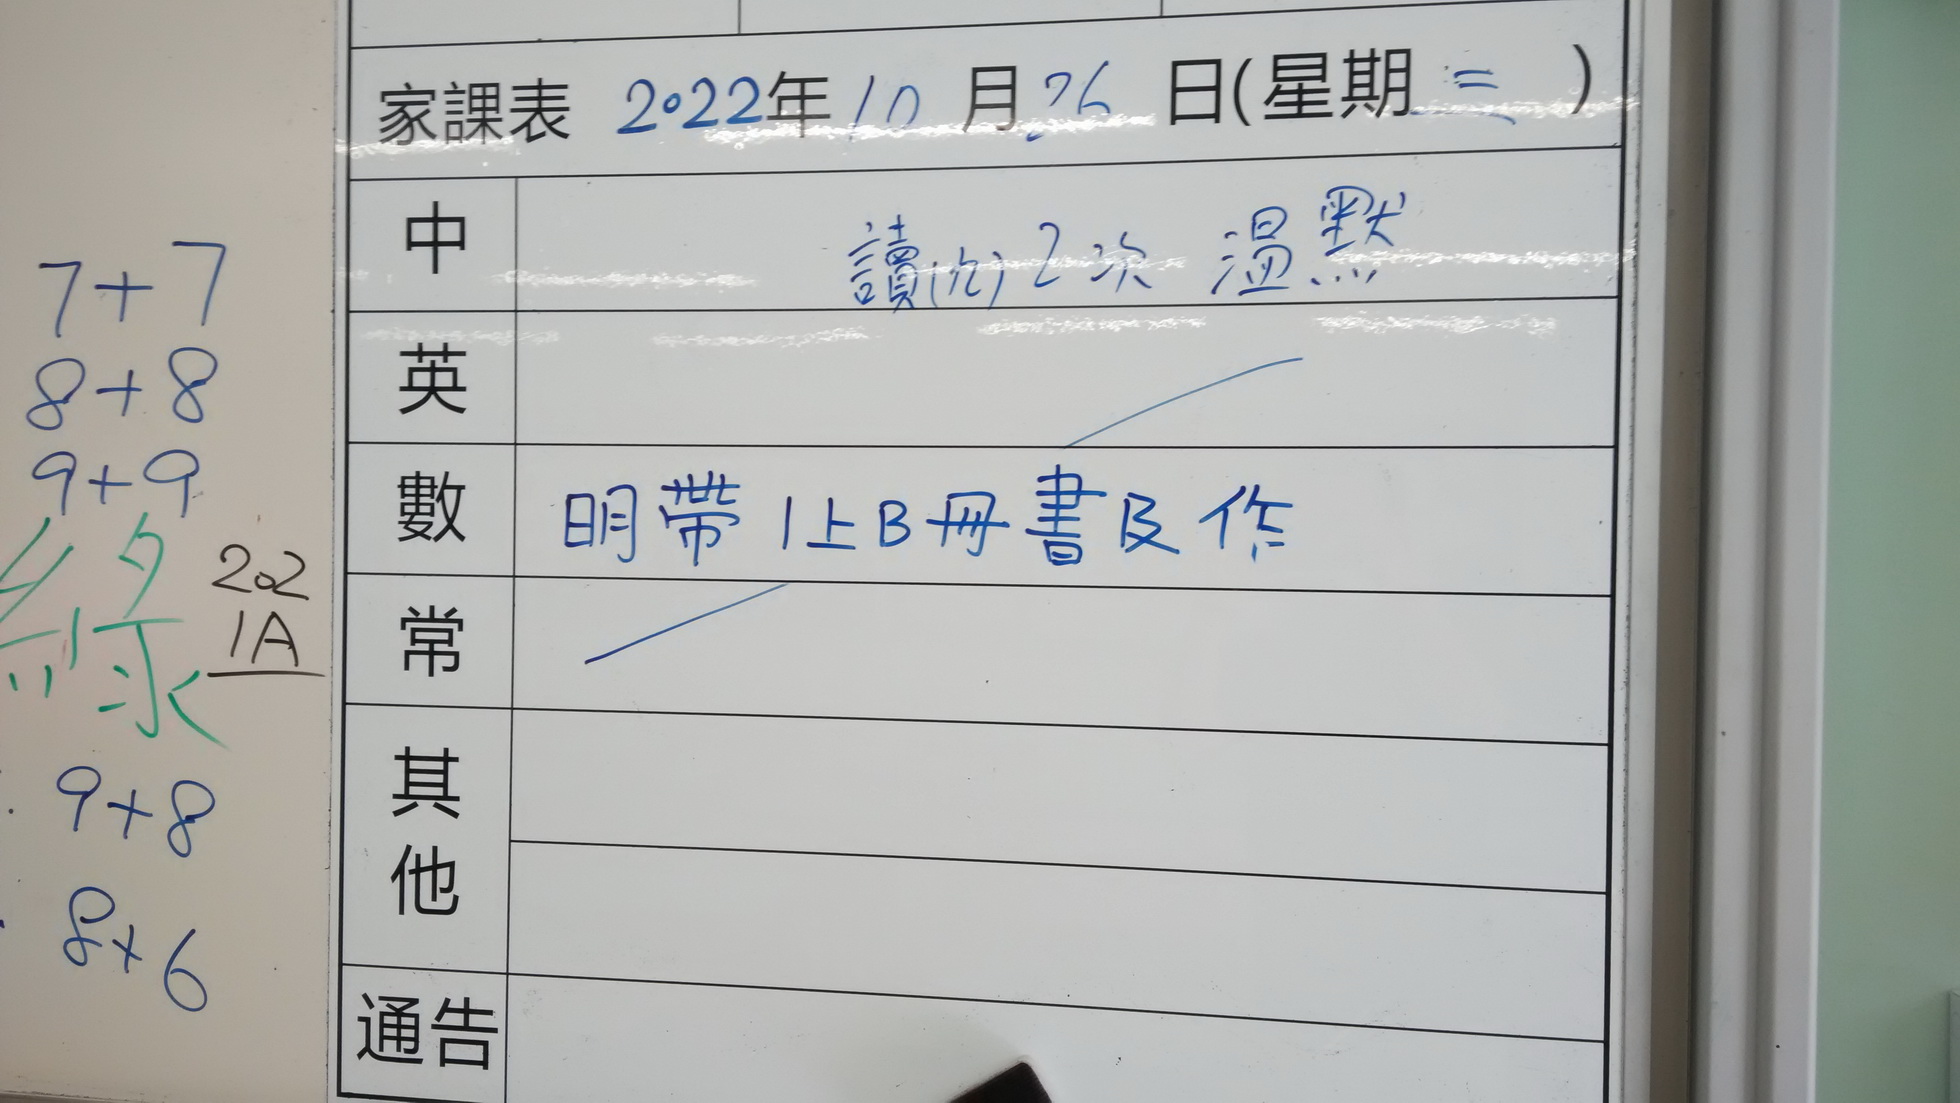 家課表 2022年10月26日(星期三)
中 讀(九)2次 溫默
英
數 明帶1上B冊書及作
常
其他
通告
7+7
8+8
9+9
202
1A
9+8
8+6